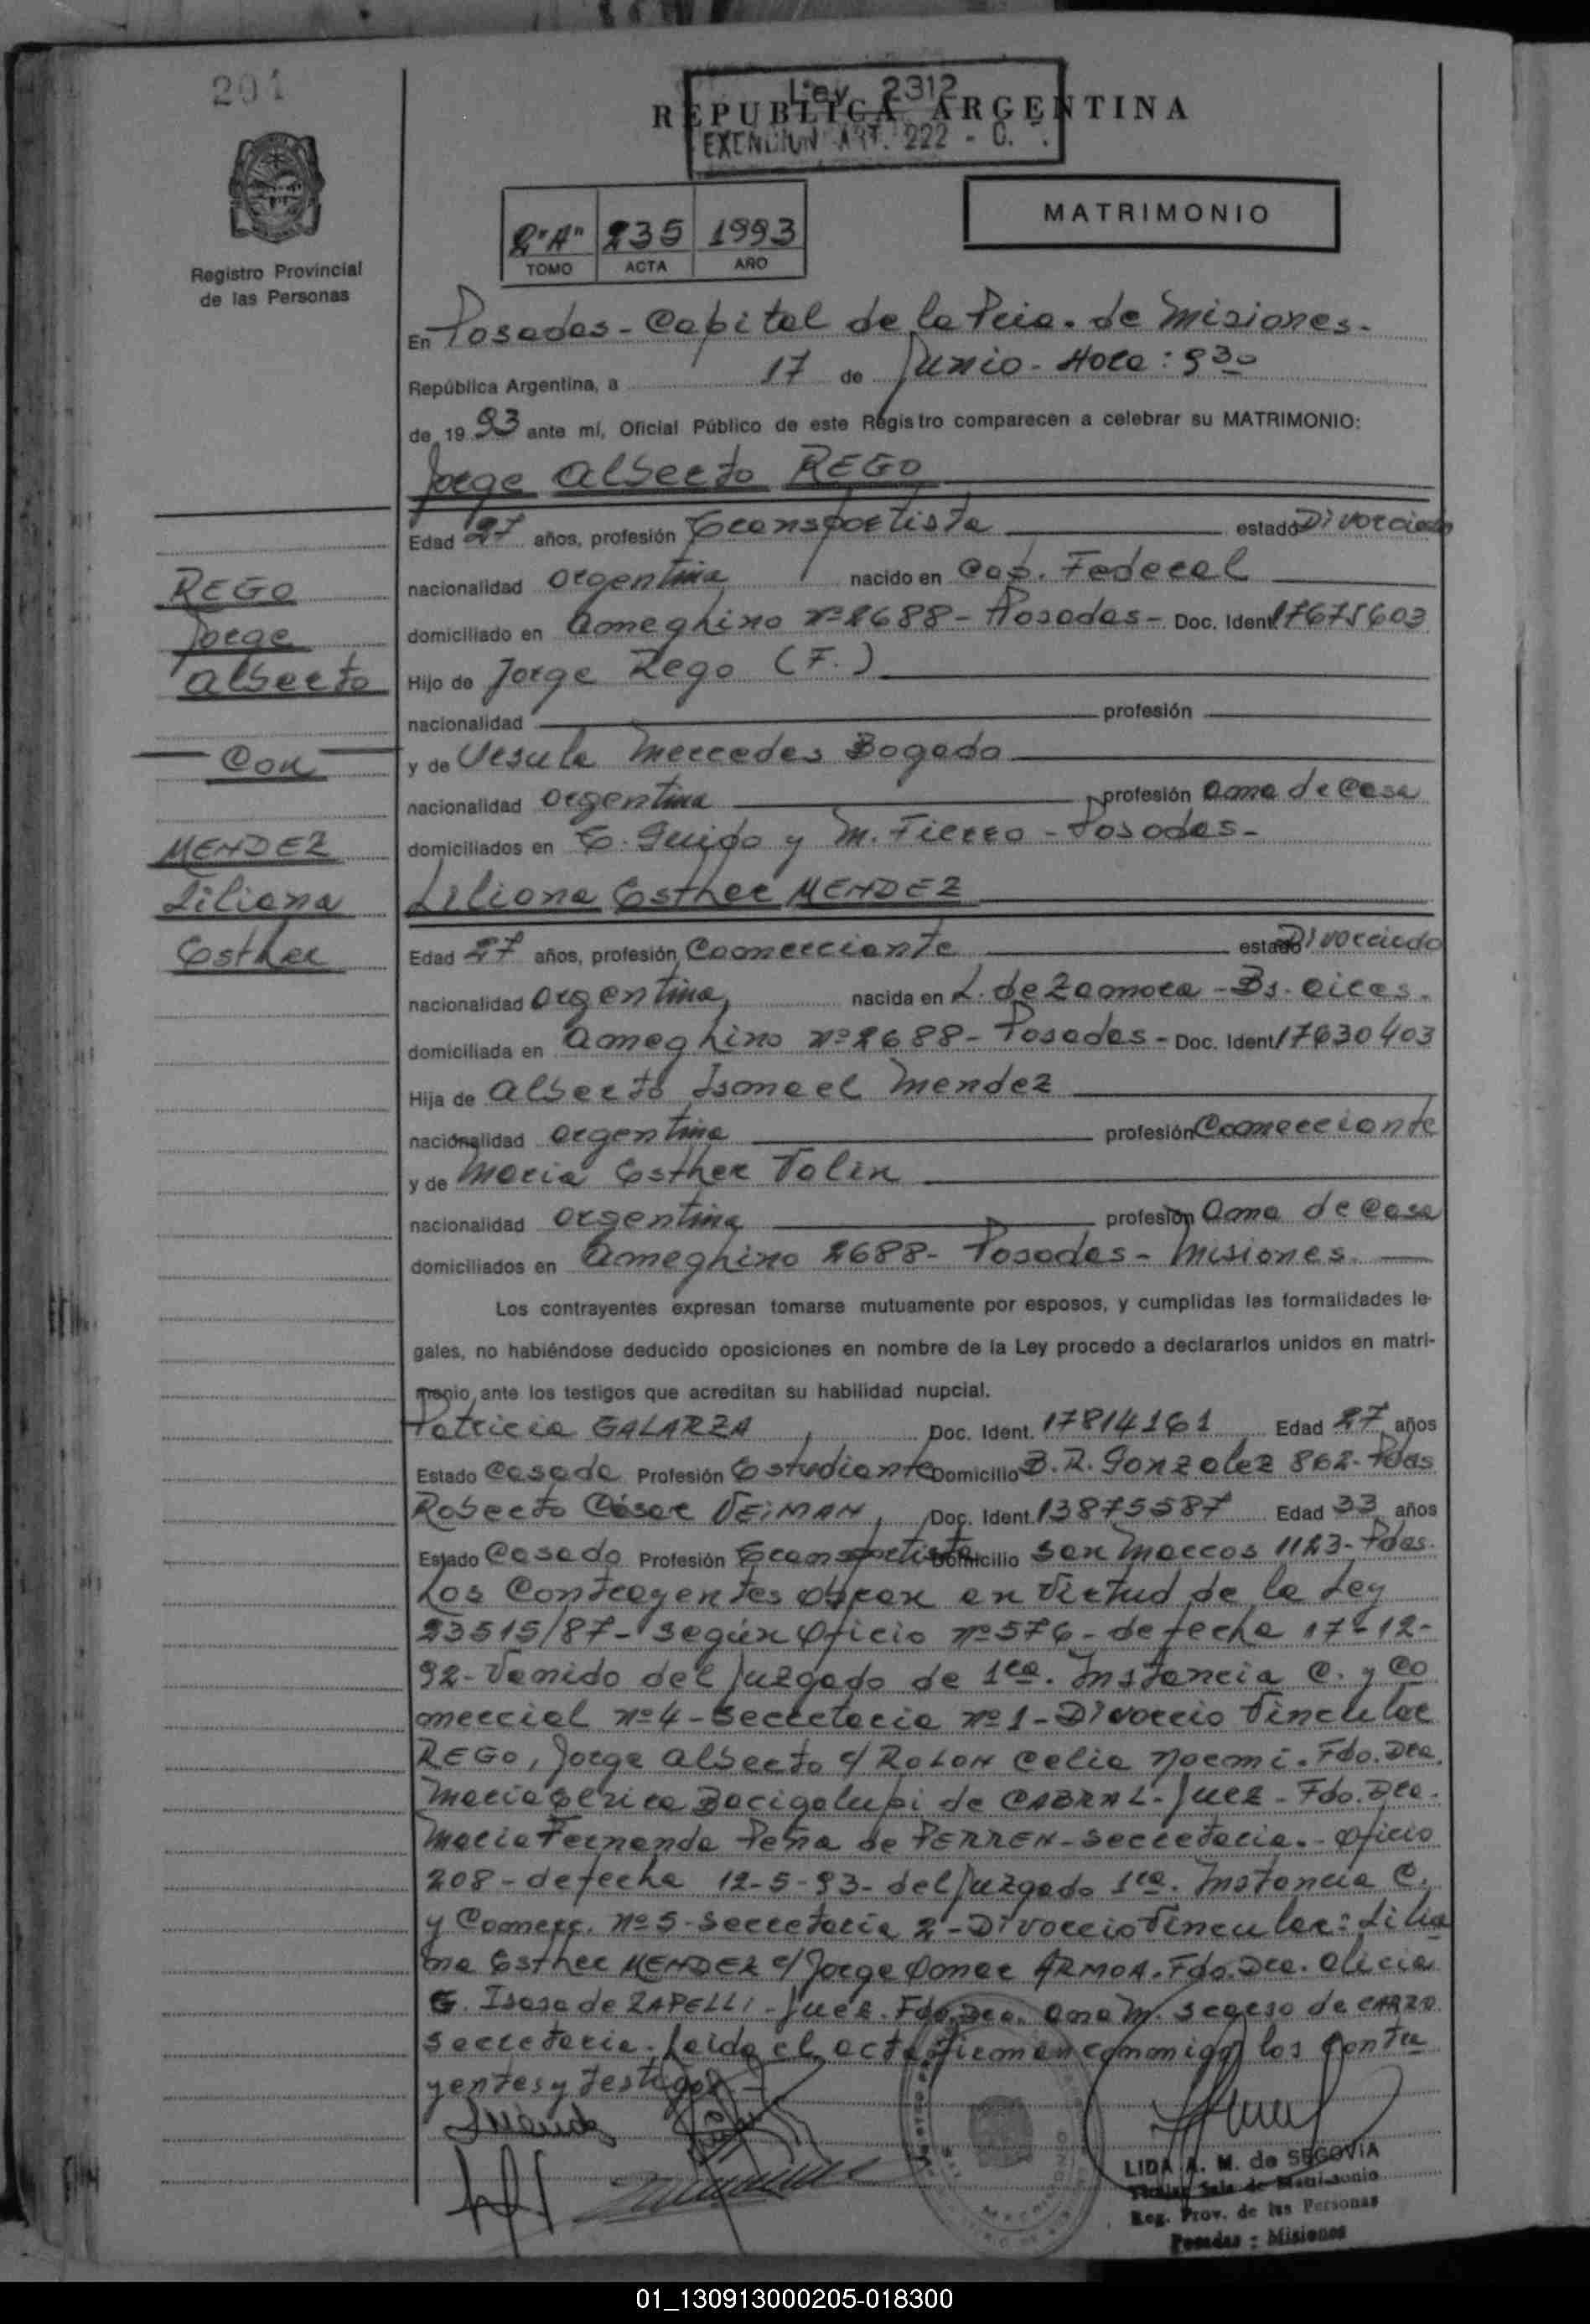 201
Ley 2312
REPUBLICA ARGENTINA
EXENCION ART. 222 - C.
MATRIMONIO
2"A" 235 1993
TOMO ACTA AÑO
Registro Provincial
de las Personas
En Posadas - Capital de la Pcia. de Misiones.
República Argentina, a 17 de Junio - Hora: 9 30
de 19 93 ante mí, Oficial Público de este Registro comparecen a celebrar su MATRIMONIO:
Jorge Alberto REGO
Edad 27 años, profesión Transportista estado Divorciado
nacionalidad Argentina nacido en Cap. Federal
domiciliado en Ameghino nº 2688 - Posadas - Doc. Ident. 17675603
Hijo de Jorge Rego (F.)
nacionalidad profesión
y de Ursula Mercedes Bogado
nacionalidad Argentina profesión Ama de Casa
domiciliados en T. Guido y M. Fierro - Posadas -
REGO
Jorge
Alberto
Con
MENDEZ
Liliana
Esther
Liliana Esther MENDEZ
Edad 27 años, profesión Comerciante estado Divorciada
nacionalidad Argentina nacida en L. de Zamora - Bs. Aires.
domiciliada en Ameghino nº 2688 - Posadas - Doc. Ident. 17630403
Hija de Alberto Ismael Mendez
nacionalidad Argentina profesión Comerciante
y de Maria Esther Tolin
nacionalidad Argentina profesión Ama de Casa
domiciliados en Ameghino 2688 - Posadas - Misiones.
Los contrayentes expresan tomarse mutuamente por esposos, y cumplidas las formalidades le-
gales, no habiéndose deducido oposiciones en nombre de la Ley procedo a declararlos unidos en matri-
monio, ante los testigos que acreditan su habilidad nupcial.
Patricia GALARZA Doc. Ident. 17814161 Edad 27 años
Estado Casada Profesión Estudiante Domicilio B. R. Gonzalez 862 - Pdas
Roberto César VEIMAN, Doc. Ident. 13875587 Edad 33 años
Estado Casado Profesión Transportista Domicilio San Marcos 1123 - Pdas.
Los Contrayentes obran en Virtud de la Ley
23515/87 - según Oficio nº 576 - de fecha 17-12-
92 - Venido del Juzgado de 1ra. Instancia C. y Co
mercial nº 4 - Secretaria nº 1 - Divorcio Vincular
REGO, Jorge Alberto c/ ROLON Celia Noemi. Fdo. Dra.
Maria Bacigalupi de CABRAL - Juez - Fdo. Dra.
Maria Fernanda Peña de PERREN - Secretaria. - Oficio
208 - de fecha 12-5-93 - del Juzgado 1ra. Instancia C.
y Comerc. nº 5 - Secretaria 2 - Divorcio Vincular: Lilia
na Esther MENDEZ c/ Jorge Omar ARMOA. Fdo. Dra. Alicia
G. Isasa de ZAPELLI - Juez. Fdo. Dra. Ana M. de
Secretaria. Leida el acta firman conmigo los Contra
yentes y testigos. -
LIDA A. M. de SEGOVIA
Titular Sala de Matrimonio
Reg. Prov. de las Personas
Posadas - Misiones
01_130913000205-018300